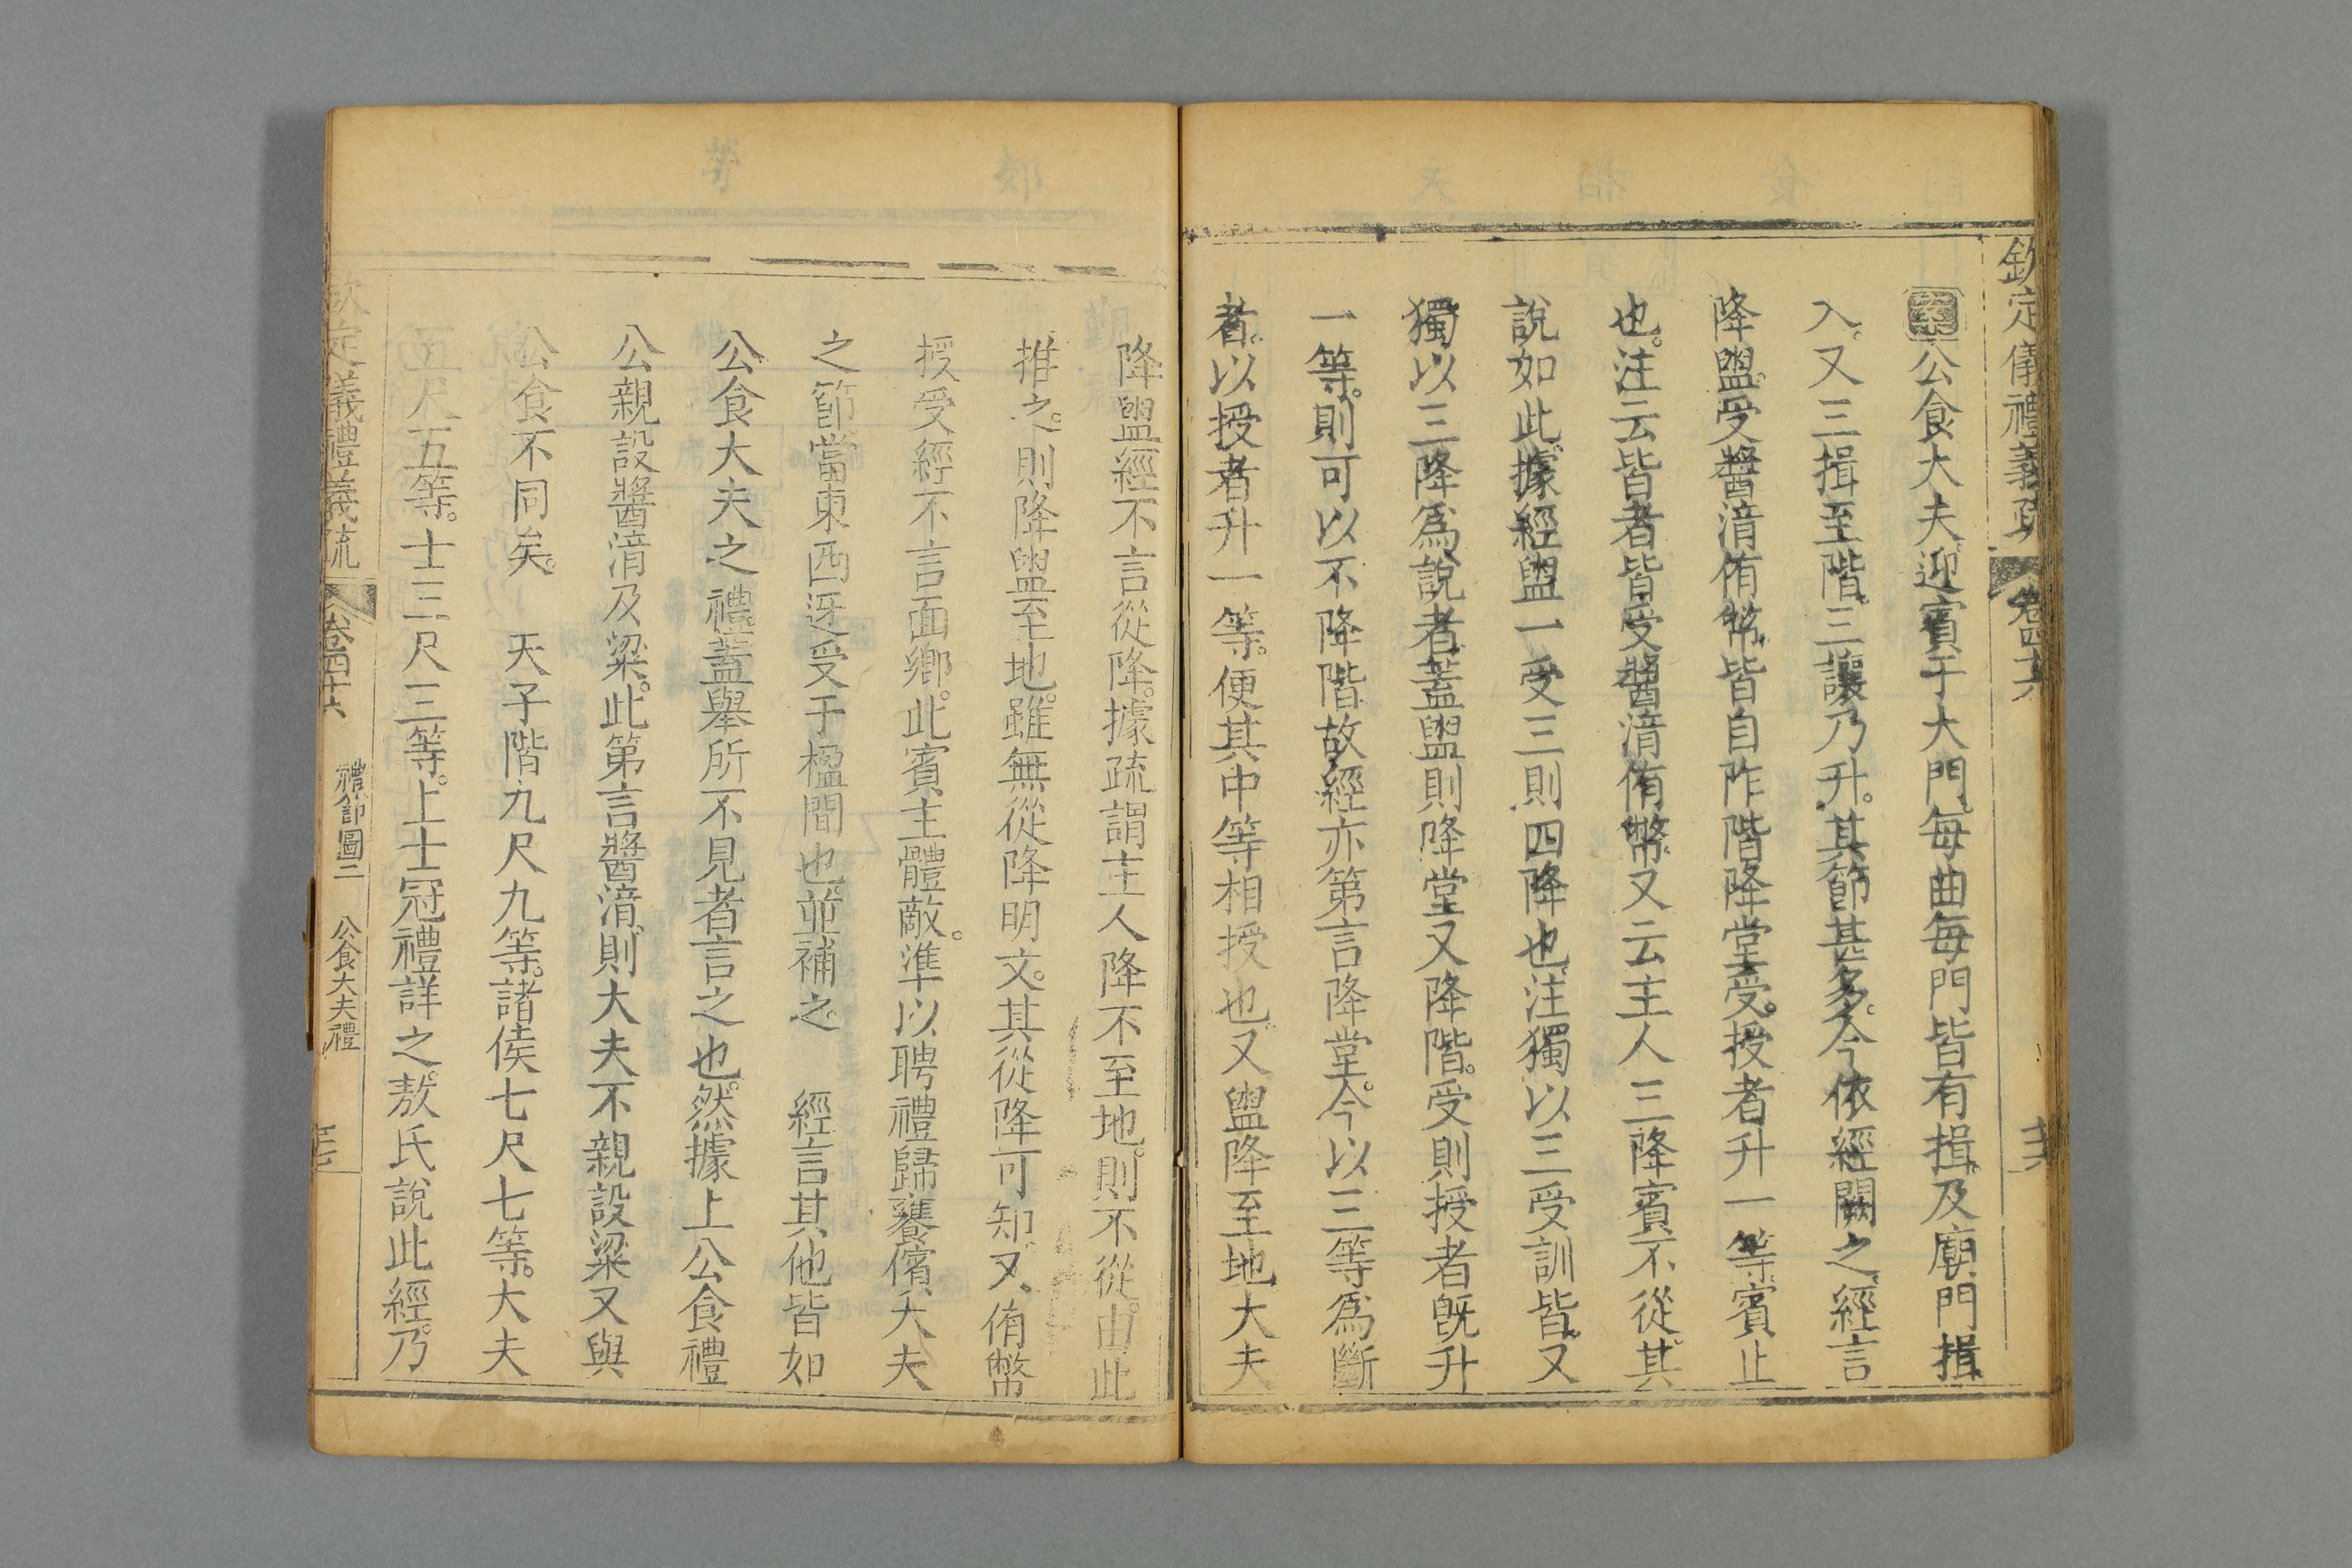 欽定儀禮義疏 卷四十六
案公食大夫迎賓于大門每曲每門皆有揖及廟門揖
入。又三揖至階三讓乃升。其節甚多。今依經闕之經言
降盥。受醬湆侑幣皆自阼階降堂受。授者升一等賓止
也。注云皆者皆受醬湆侑幣又云主人三降賓不從。其
說如此據經盥一受三則四降也注獨以三受訓皆又
獨以三降爲說者蓋盥則降堂又降階。受則授者旣升
一等。則可以不降階故經亦第言降堂。今以三等爲斷
者。以授者升一等。便其中等相授也又盥降至地大夫
降盥經不言從降。據疏謂主人降不至地。則不從。由此
推之。則降盥至地。雖無從降明文。其從降可知。又侑幣
授受經不言面鄉。此賓主體敵。準以聘禮歸饔儐大夫
之節當東西迓受于楹間也並補之。 經言其他皆如
公食大夫之禮蓋舉所不見者言之也。然據上公食禮
公親設醬湆及粱。此第言醬湆。則大夫不親設粱又與
公食不同矣。 天子階九尺九等。諸侯七尺七等。大夫
五尺五等。士三尺三等。上士冠禮詳之。敖氏說此經。乃
欽定儀禮義疏 卷四十六 禮節圖二 公食大夫禮